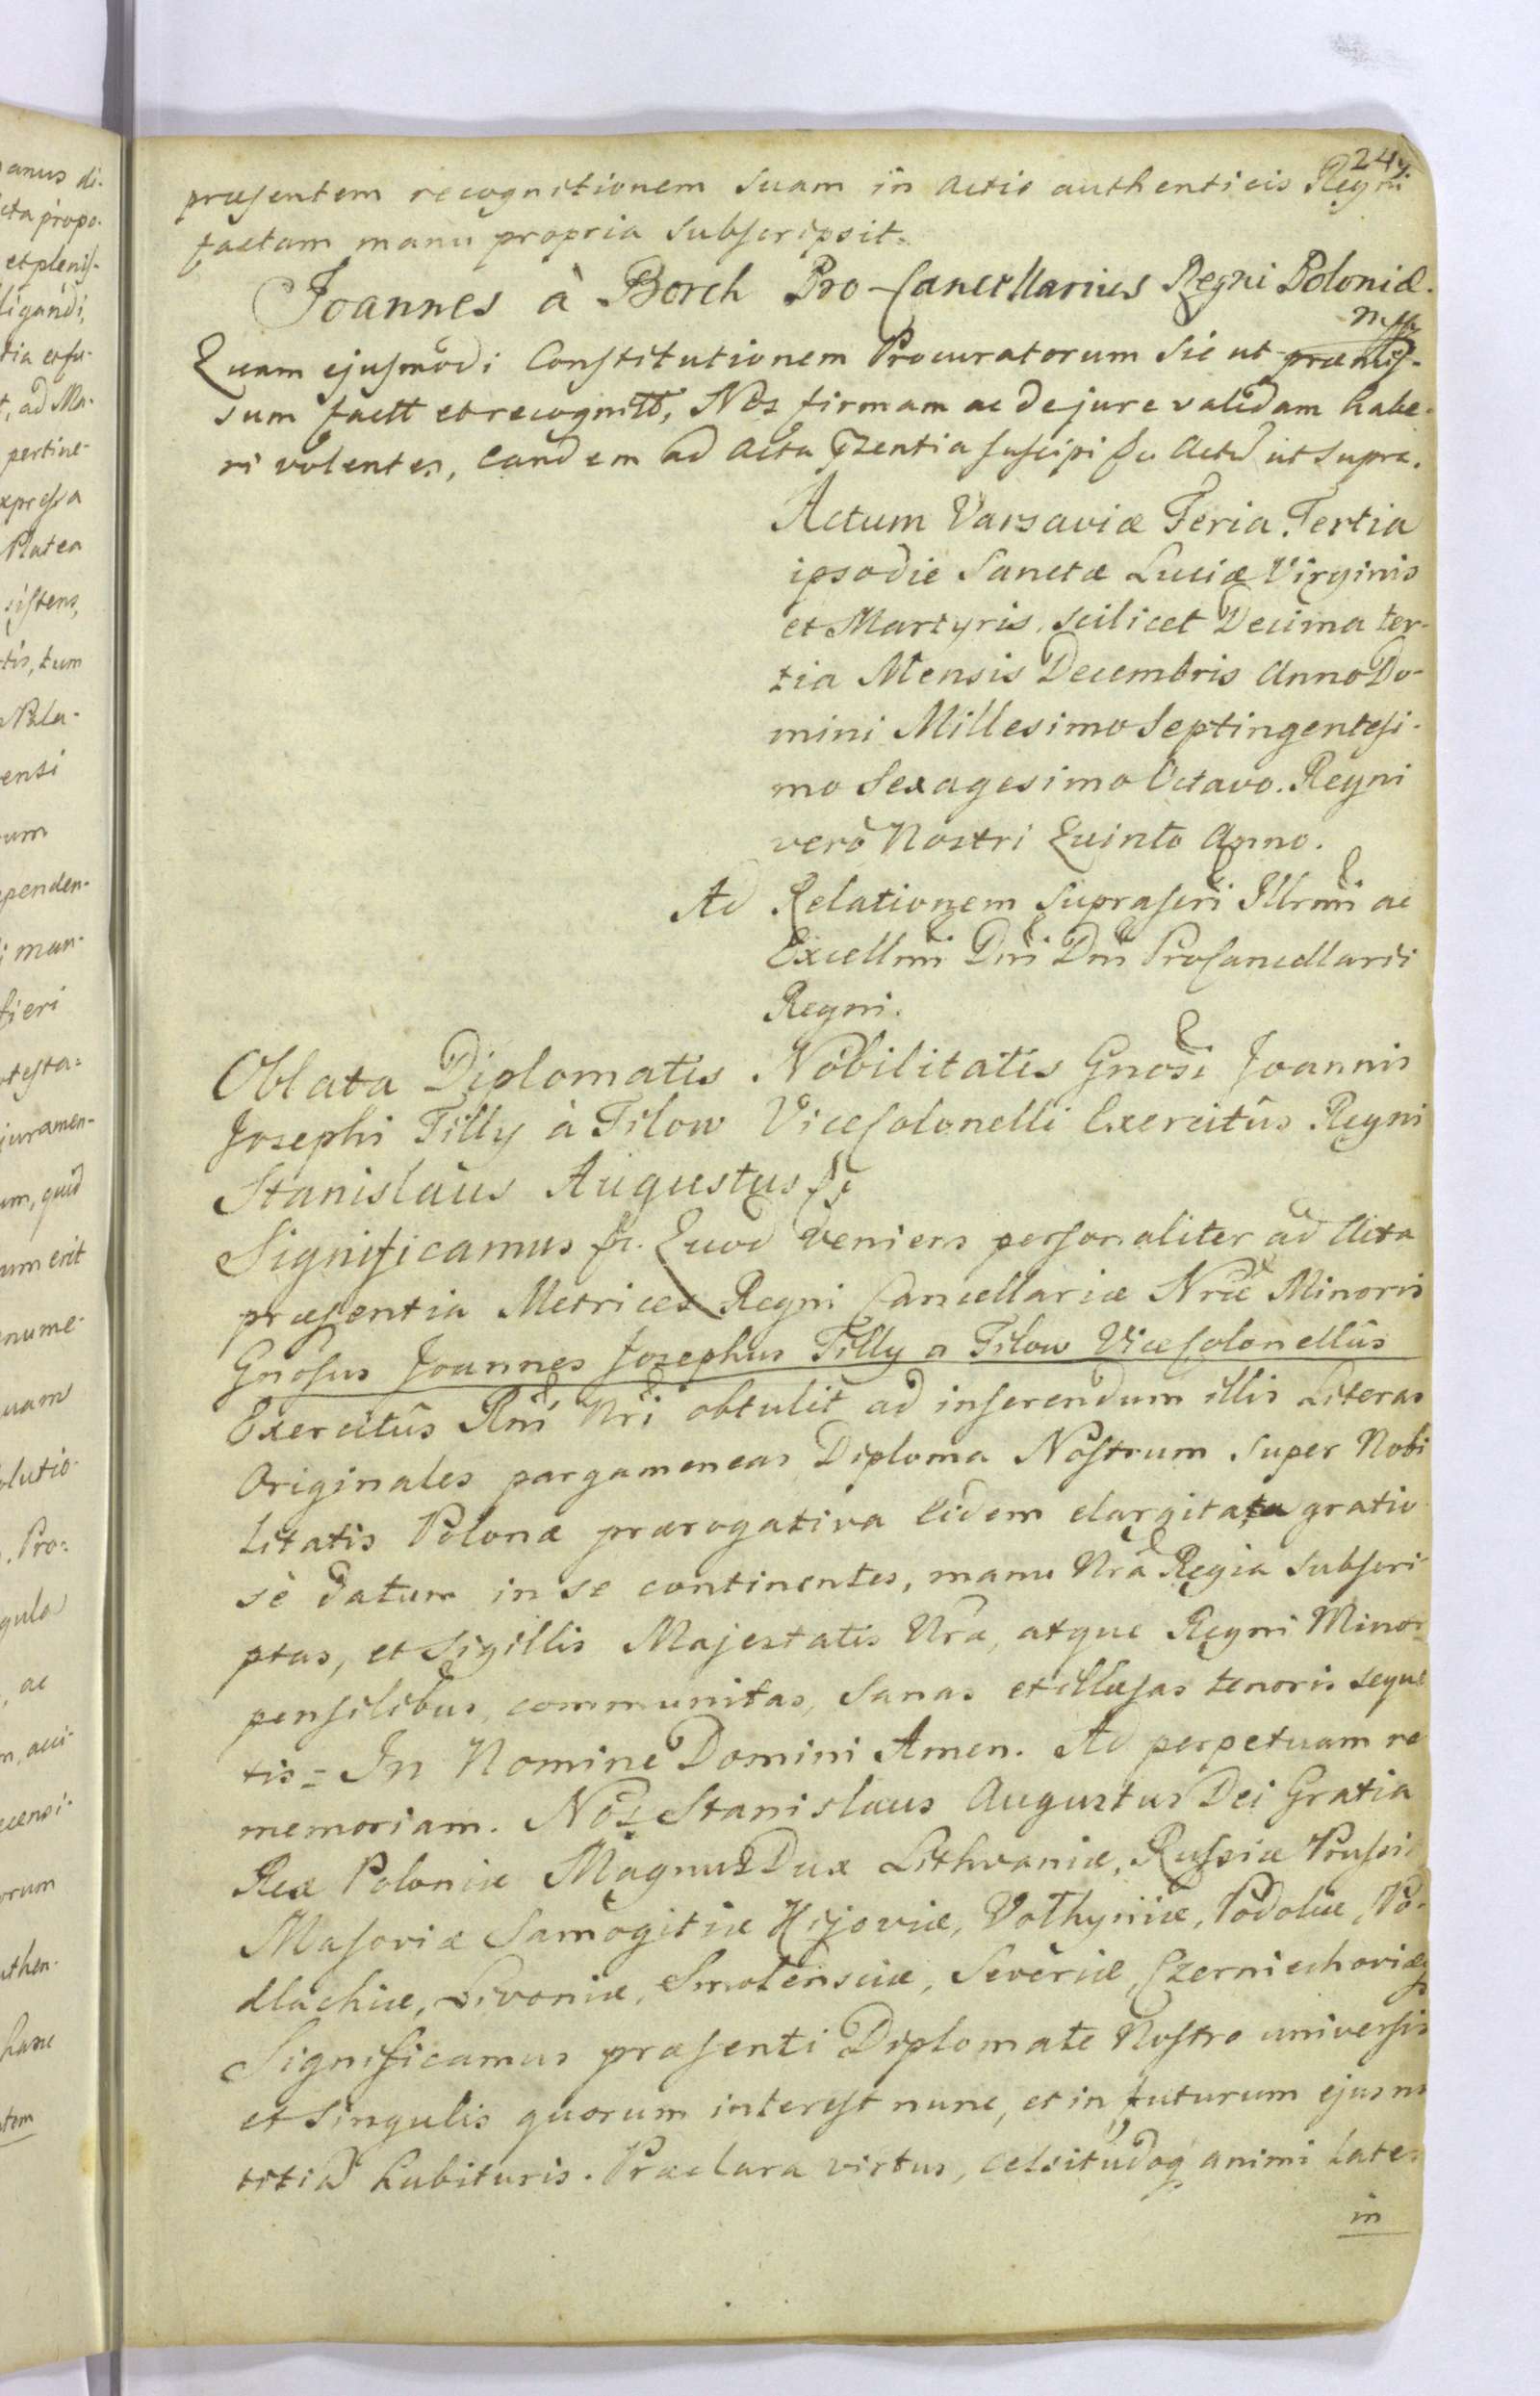 præsentem recognitionem suam in Actis authenticis Regni
factam manu propria subscripsit.
Joannes à Borch Pro-Cancellarius Regni Poloniæ.
mpp
Quam ejusmodi Constitutionem Procuratorum sic ut præmis-
sum factt et recognitt, Nos firmam ac de jure validam habe-
ri volentes, eandem ad Acta suscipi Actu ut supra.
Actum Varsaviæ Feria Tertia
ipsodie Sanctæ Luciæ Virginis
et Martyris, scilicet Decima ter-
tia Mensis Decembris Anno Do-
mini Millesimo Septingentesi-
mo Sexagesimo Octavo. Regni
verò Nostri Quinto Anno.
Ad Relationem suprascri Illrmi ac
Excellmi Dni Dni ProCancellarii
Regni.
Oblata Diplomatis Nobilitatis Gnosi Joannis
Josephi Tilly à Tilow ViceColonelli Exercitûs Regni
Stanislaus Augustus
Significamus Quod veniens personaliter ad Acta
præsentia Metrices Regni Cancellariæ Nræ Minoris
Gnosus Joannes Josephus Tilly a Tilow ViceColonellus
Exercitûs Rni Nri obtulit ad inserendum illis Literas
Originales pargameneas Diploma Nostrum super Nobi
litatis Polonæ prærogativa Eidem elargitata gratio
sè datum in se continentes, manu Nrâ Regia subscri
ptas, et Sigillis Majestatis Nræ, atque Regni Minor
pensilibus, communitas, sanas et illæsas tenoris seque
tis = In Nomine Domini Amen. Ad perpetuam re
memoriam. Nos Stanislaus Augustus Dei Gratia
Rex Poloniæ Magnus Dux Lithvaniæ, Russiæ Prussi
Masoviæ Samogitiæ Kijoviæ, Volhyniiæ, Podoliæ, Po-
dlachiæ, Livoniæ, Smolensciæ, Severiæ, Czerniechoviæq
Significamus præsenti Diplomate Nostro universis
et singulis quorum interest nunc, et in futurum ejus no
titiã habituris. Præclara virtus, celsitudoq animi late-
in